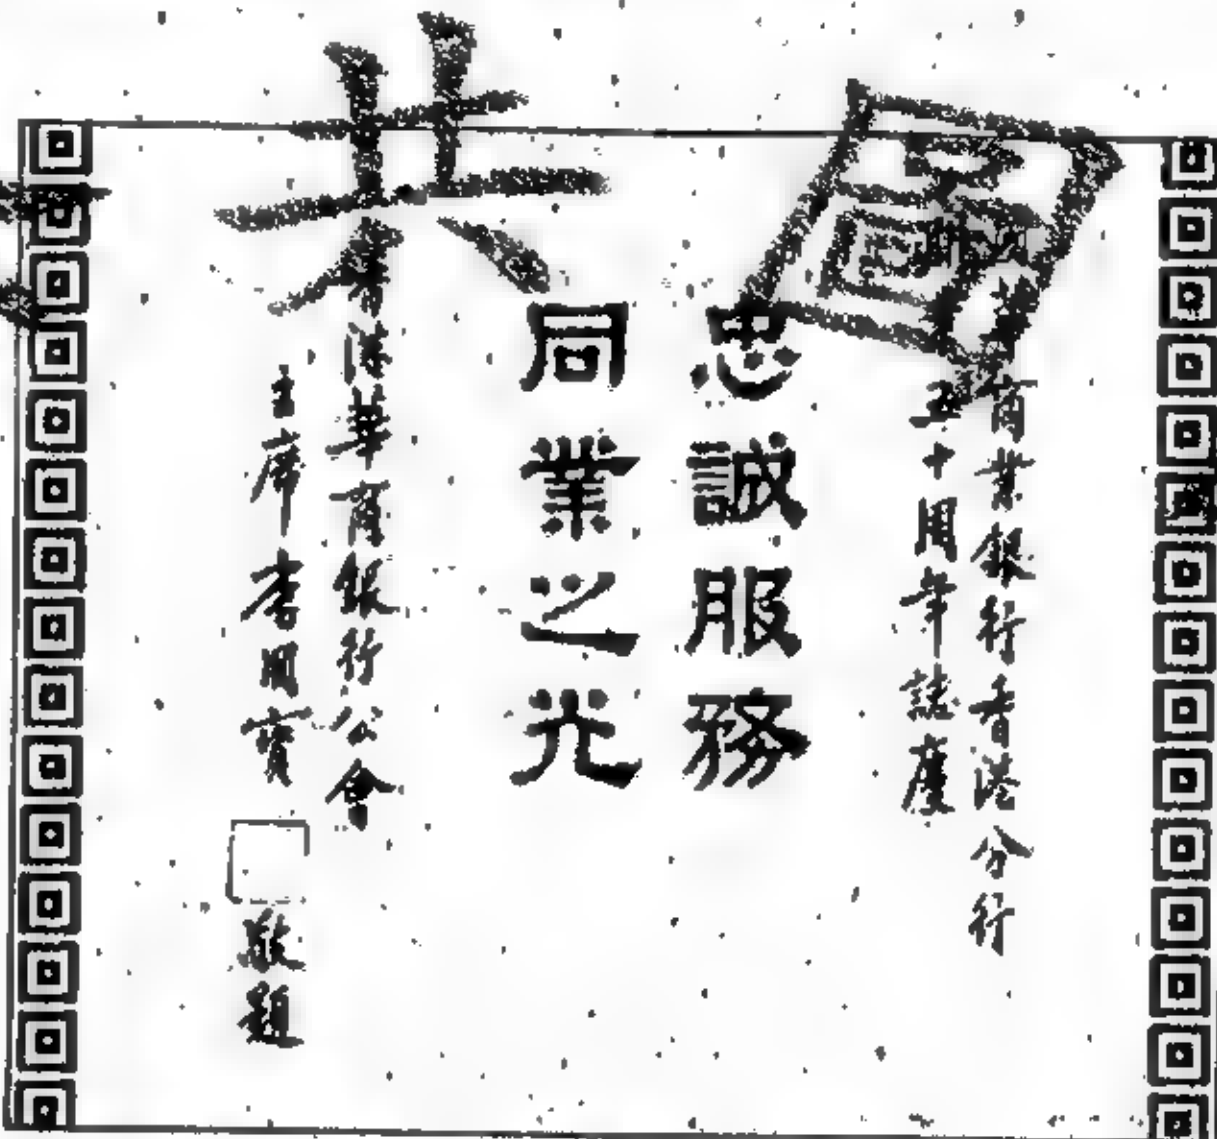 商業銀行香港分行
五十周年誌慶
忠誠服務
同業之光
香港華商銀行公會
主席李國寶
敬題
圖
共